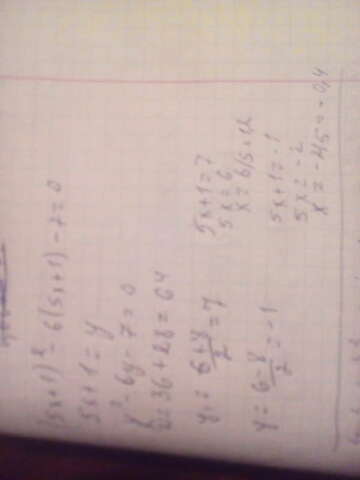 (5x+1)² - 6(5x+1) - 7 = 0
5x+1 = y
y² - 6y - 7 = 0
D = 36 + 28 = 64
y₁ = (6+8)/2 = 7
5x+1 = 7
5x = 6
x = 6/5 = 1,2
y = (6-8)/2 = -1
5x+1 = -1
5x = -2
x = -2/5 = -0,4